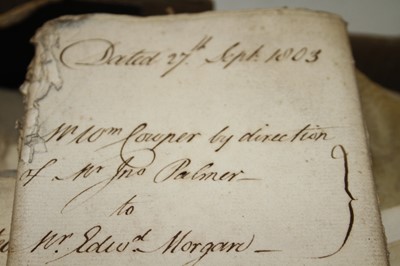 Dated 27th Sept. 1803
Mr. Wm Cowper by direction
of Mr Jno Palmer
to
Mr. Edwd. Morgan